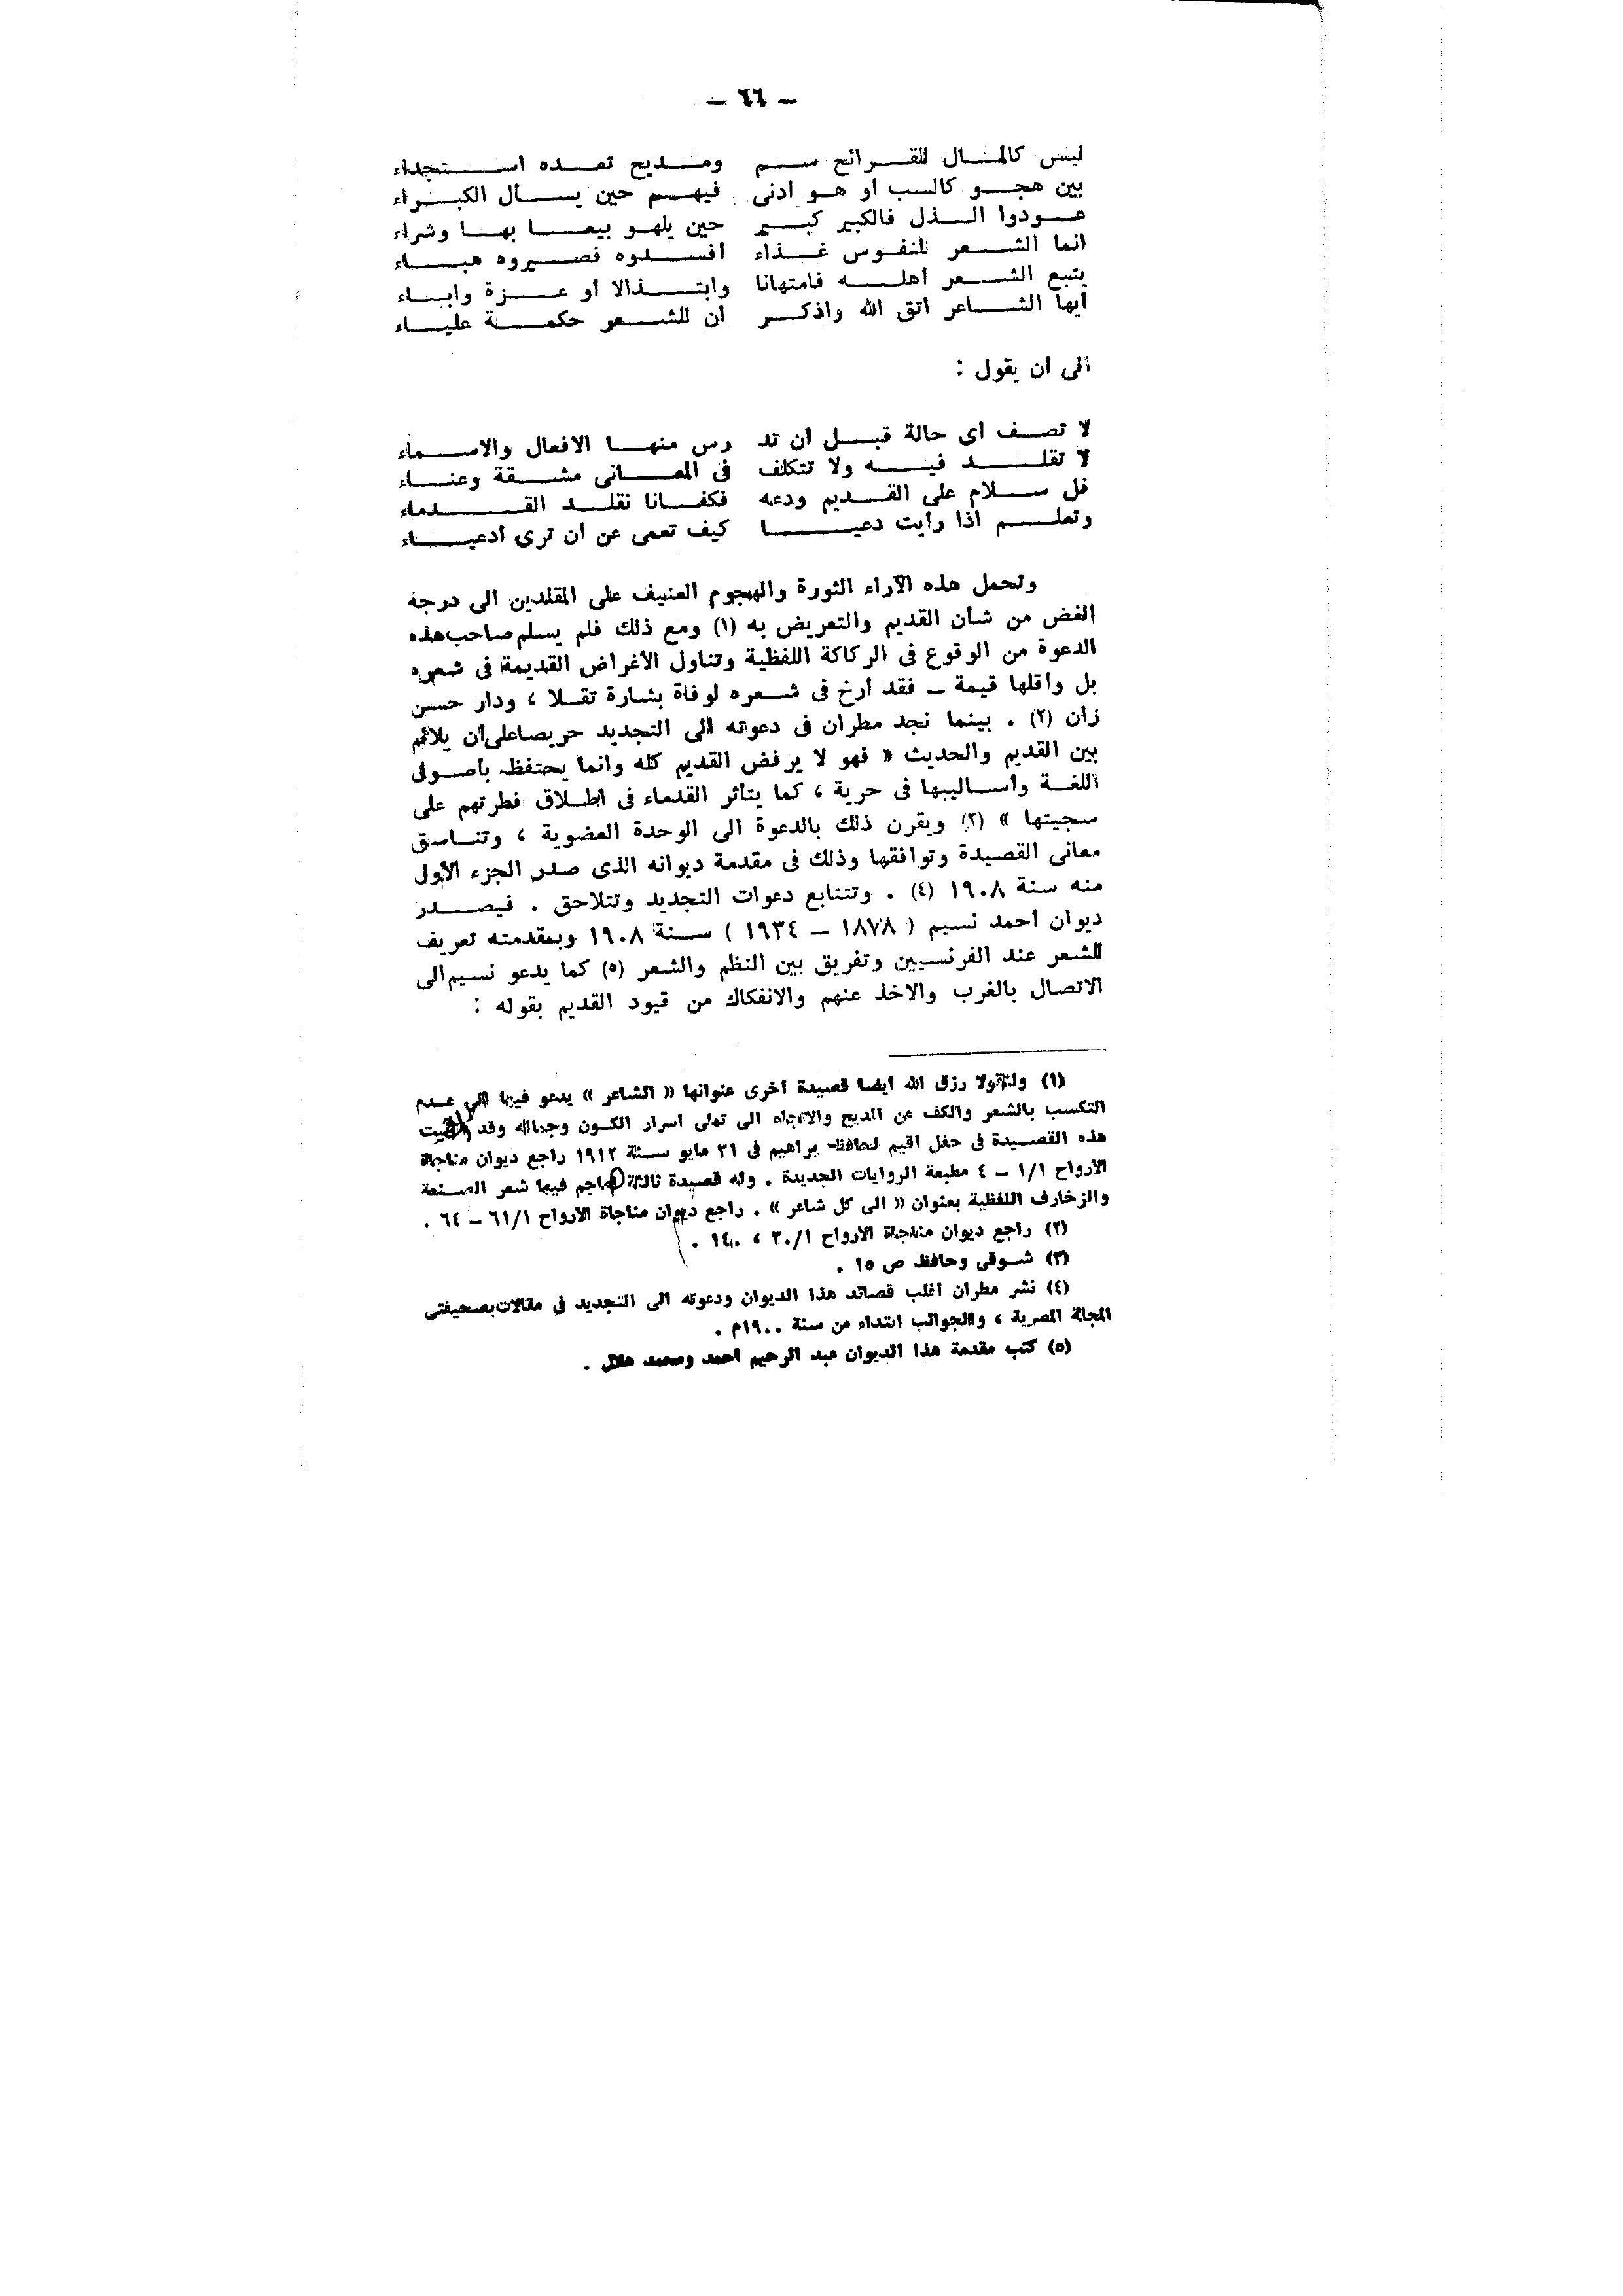 — ٦٦ —
ليس كالمال للقرائح سم ومديح تعده استجداء
بين هجو كالسب او هو ادنى فيهم حين يسأل الكبراء
عودوا الذل فالكبير كبير حين يلهو بيعا بها وشراء
انما الشعر للنفوس غذاء افسدوه فصيروه هباء
يتبع الشعر أهله فامتهانا وابتذالا أو عزة واباء
أيها الشاعر اتق الله واذكر أن للشعر حكمة علياء
الى ان يقول :
لا تصف اى حالة قبل أن تد رس منها الافعال والاسماء
لا تقلد فيه ولا تتكلف فى المعانى مشقة وعناء
قل سلام على القديم ودعه فكفانا نقلد القدماء
وتعلم اذا رايت دعيا كيف تعمى عن ان ترى أدعياء
وتحمل هذه الآراء الثورة والهجوم العنيف على المقلدين الى درجة
الغض من شأن القديم والتعريض به (١) ومع ذلك فلم يسلم صاحب هذه
الدعوة من الوقوع فى الركاكة اللفظية وتناول الأغراض القديمة فى شعره
بل واقلها قيمة — فقد أرخ فى شعره لوفاة بشارة تقلا ، ودار حسن
زان (٢) . بينما نجد مطران فى دعوته الى التجديد حريصا على أن يلائم
بين القديم والحديث « فهو لا يرفض القديم كله وانما يحتفظ بأصول
اللغة وأساليبها فى حرية ، كما يتأثر القدماء فى اطلاق فطرتهم على
سجيتها » (٣) ويقرن ذلك بالدعوة الى الوحدة العضوية ، وتناسق
معانى القصيدة وتوافقها وذلك فى مقدمة ديوانه الذى صدر الجزء الأول
منه سنة ١٩٠٨ (٤) . وتتتابع دعوات التجديد وتتلاحق . فيصدر
ديوان أحمد نسيم ( ١٨٧٨ — ١٩٣٤ ) سنة ١٩٠٨ وبمقدمته تعريف
للشعر عند الفرنسيين وتفريق بين النظم والشعر (٥) كما يدعو نسيم الى
الاتصال بالغرب والاخذ عنهم والانفكاك من قيود القديم بقوله :
(١) ولنقولا رزق الله أيضا قصيدة أخرى عنوانها « الشاعر » يدعو فيها الى عدم
التكسب بالشعر والكف عن المديح والاتجاه الى تملى أسرار الكون وجماله وقد
هذه القصيدة فى حفل أقيم لحافظ براهيم فى ٣١ مايو سنة ١٩١٢ راجع ديوان مناجاة
الأرواح ١/١ — ٤ مطبعة الروايات الجديدة . وله قصيدة ثالثة يهاجم فيها شعر الصنعة
والزخارف اللفظية بعنوان « الى كل شاعر » . راجع ديوان مناجاة الأرواح ٦١/١ — ٦٤ .
(٢) راجع ديوان مناجاة الأرواح ٣٠/١ ، ١٤٠ .
(٣) شوقى وحافظ ص ١٥ .
(٤) نشر مطران أغلب قصائد هذا الديوان ودعوته الى التجديد فى مقالات بصحيفتى
المجلة المصرية ، والجوائب ابتداء من سنة ١٩٠٠م .
(٥) كتب مقدمة هذا الديوان عبد الرحيم أحمد ومحمد هلال .